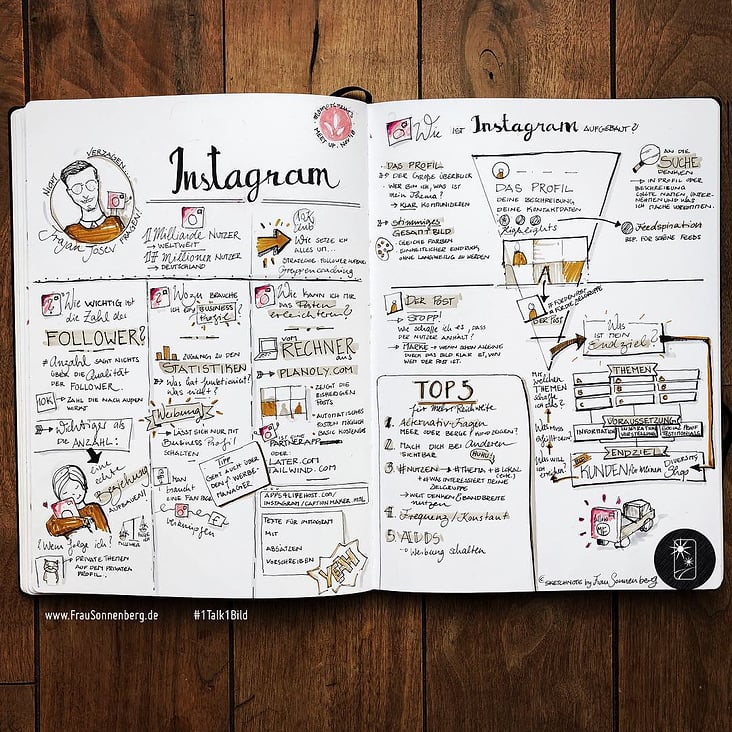 MEET UP. NOV 18
NICHT VERZAGEN
FRAGEN
Instagram
1 Milliarde NUTZER
→ WELTWEIT
NUTZER
→ DEUTSCHLAND
WIE SETZE ICH
ALLES UM...
STRATEGIE. FOLLOWER AUFBAU
Gruppencoaching
Wie WICHTIG ist
die Zahl der
FOLLOWER?
≠ Anzahl SAGT NICHTS
ÜBER DIE Qualität
DER FOLLOWER.
10K → ZAHL DIE NACH AUßEN
WIRKT
→ Wichtiger als
DIE ANZAHL:
eine
echte
Beziehung
AUFBAUEN!
! Wem folge ich!
→ PRIVATE THEMEN
AUF DEM PRIVATEN
PROFIL.
Wozu BRAUCHE
ICH EIN BUSINESS
Profil?
ZUGANG ZU DEN
STATISTIKEN
→ Was hat funktioniert?
was nicht?
Werbung
→ LÄSST SICH NUR MIT
Business Profil
SCHALTEN
TIPP
GEHT AUCH ÜBER
DEN WERBE-
MANAGER
! MAN
BRAUCHT
EINE FAN PAGE
verknüpfen
Wie kann ich mir
das Posten
erleichtern?
VOM
RECHNER
aus
PLANOLY.COM
→ ZEIGT DIE
EIGENEN
POSTS
→ AUTOMATISCHES
POSTEN MÖGLICH
→ BASIC KOSTENLOS
IST EINE
PARTNERAPP
ODER:
LATER.COM
TAILWIND.COM
APPS4LIFEHOST.COM/
INSTAGRAM/CAPTIONMAKER.HTML
TEXTE FÜR INSTAGRAM
MIT
ABSÄTZEN
VORSCHREIBEN
YEAH
Wie IST Instagram AUFGEBAUT?
DAS PROFIL
→ DER GROßE ÜBERBLICK
WER BIN ICH, WAS IST
MEIN THEMA?
→ KLAR KOMMUNIZIEREN
→ Stimmiges
GESAMTBILD
- GLEICHE FARBEN
EINHEITLICHER EINDRUCK
OHNE LANGWEILIG ZU WERDEN
DAS PROFIL
DEINE BESCHREIBUNG
DEINE KONTAKTDATEN
Highlights
AN DIE
SUCHE
DENKEN
→ IN PROFIL ODER
BESCHREIBUNG
SOLLTE NAMEN, UNTER-
NEHMEN UND WAS
ICH MACHE VORKOMMEN.
→ Feedspiration
BSP. FÜR SCHÖNE FEEDS
DER POST
→ STOPP!
Wie schaffe ich es, dass
DER NUTZER ANHÄLT?
→ MARKE → WENN SCHON ALLEINE
DURCH DAS BILD KLAR IST, VON
WEM DER POST IST.
DER POST
# FÜR DIE ZIELGRUPPE
WAS
IST MEIN
Endziel?
Mit
welchen
THEMEN
schaffe
ich das?
THEMEN
VORAUSSETZUNG
INFORMATION
INSPIRATION
VORSTELLUNG
SOCIAL PROOF
TESTIMONIALS
ENDZIEL
KUNDEN für Meinen
DIVERSITY
Shop
TOP 5
für mehr Reichweite
1. Alternativ-Fragen
MEER ODER BERGE / HÜ ODER?
2. MACH DICH BEI Anderen
SICHTBAR HUHU!
3. #NUTZEN → #THEMA + #LOKAL
+ #WAS INTERESSIERT DEINE
ZIELGRUPPE
→ WEIT DENKEN & BANDBREITE
nutzen
4. Frequenz / Konstant
5. ADDS
→ Werbung schalten
© SKETCHNOTE by Frau Sonnenberg
www.FrauSonnenberg.de #1Talk1Bild